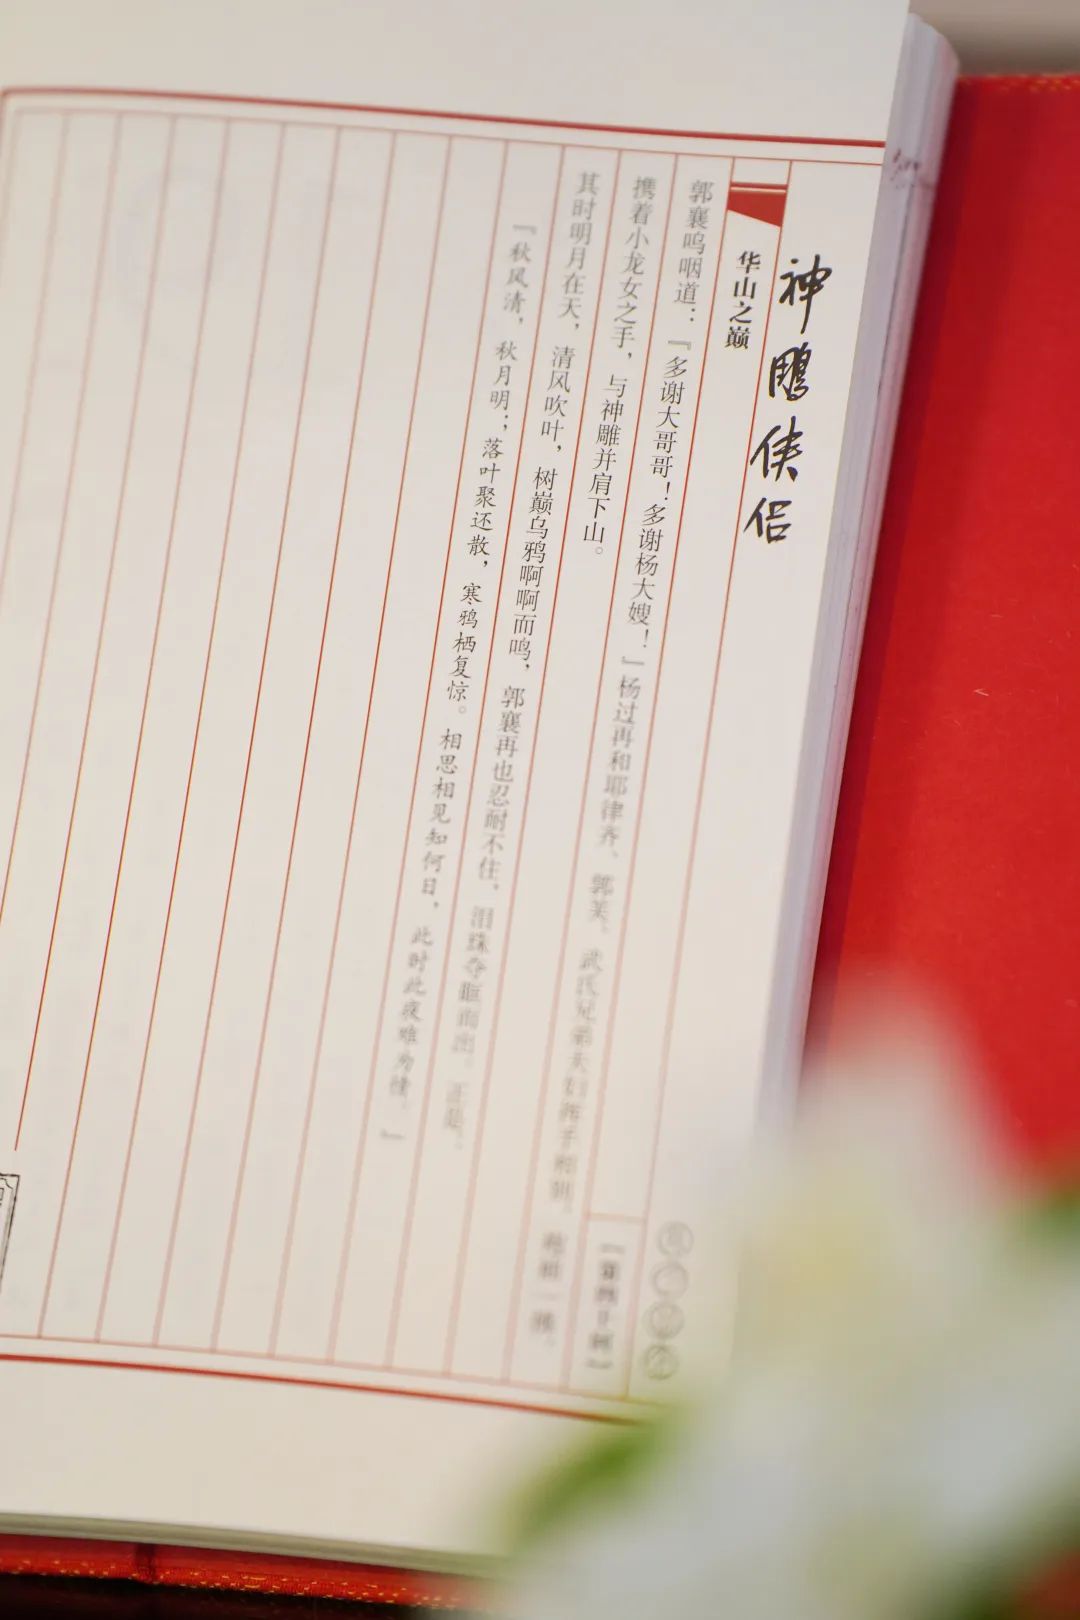 神鵰侠侣
华山之巅
郭襄呜咽道：『多谢大哥哥！多谢杨大嫂！』杨过再和耶律齐、郭芙、武氏兄弟夫妇挥手相别，袍袖一拂，
携着小龙女之手，与神雕并肩下山。
其时明月在天，清风吹叶，树巅乌鸦啊啊而鸣，郭襄再也忍耐不住，泪珠夺眶而出。正是：
『秋风清，秋月明；落叶聚还散，寒鸦栖复惊。相思相见知何日，此时此夜难为情。』